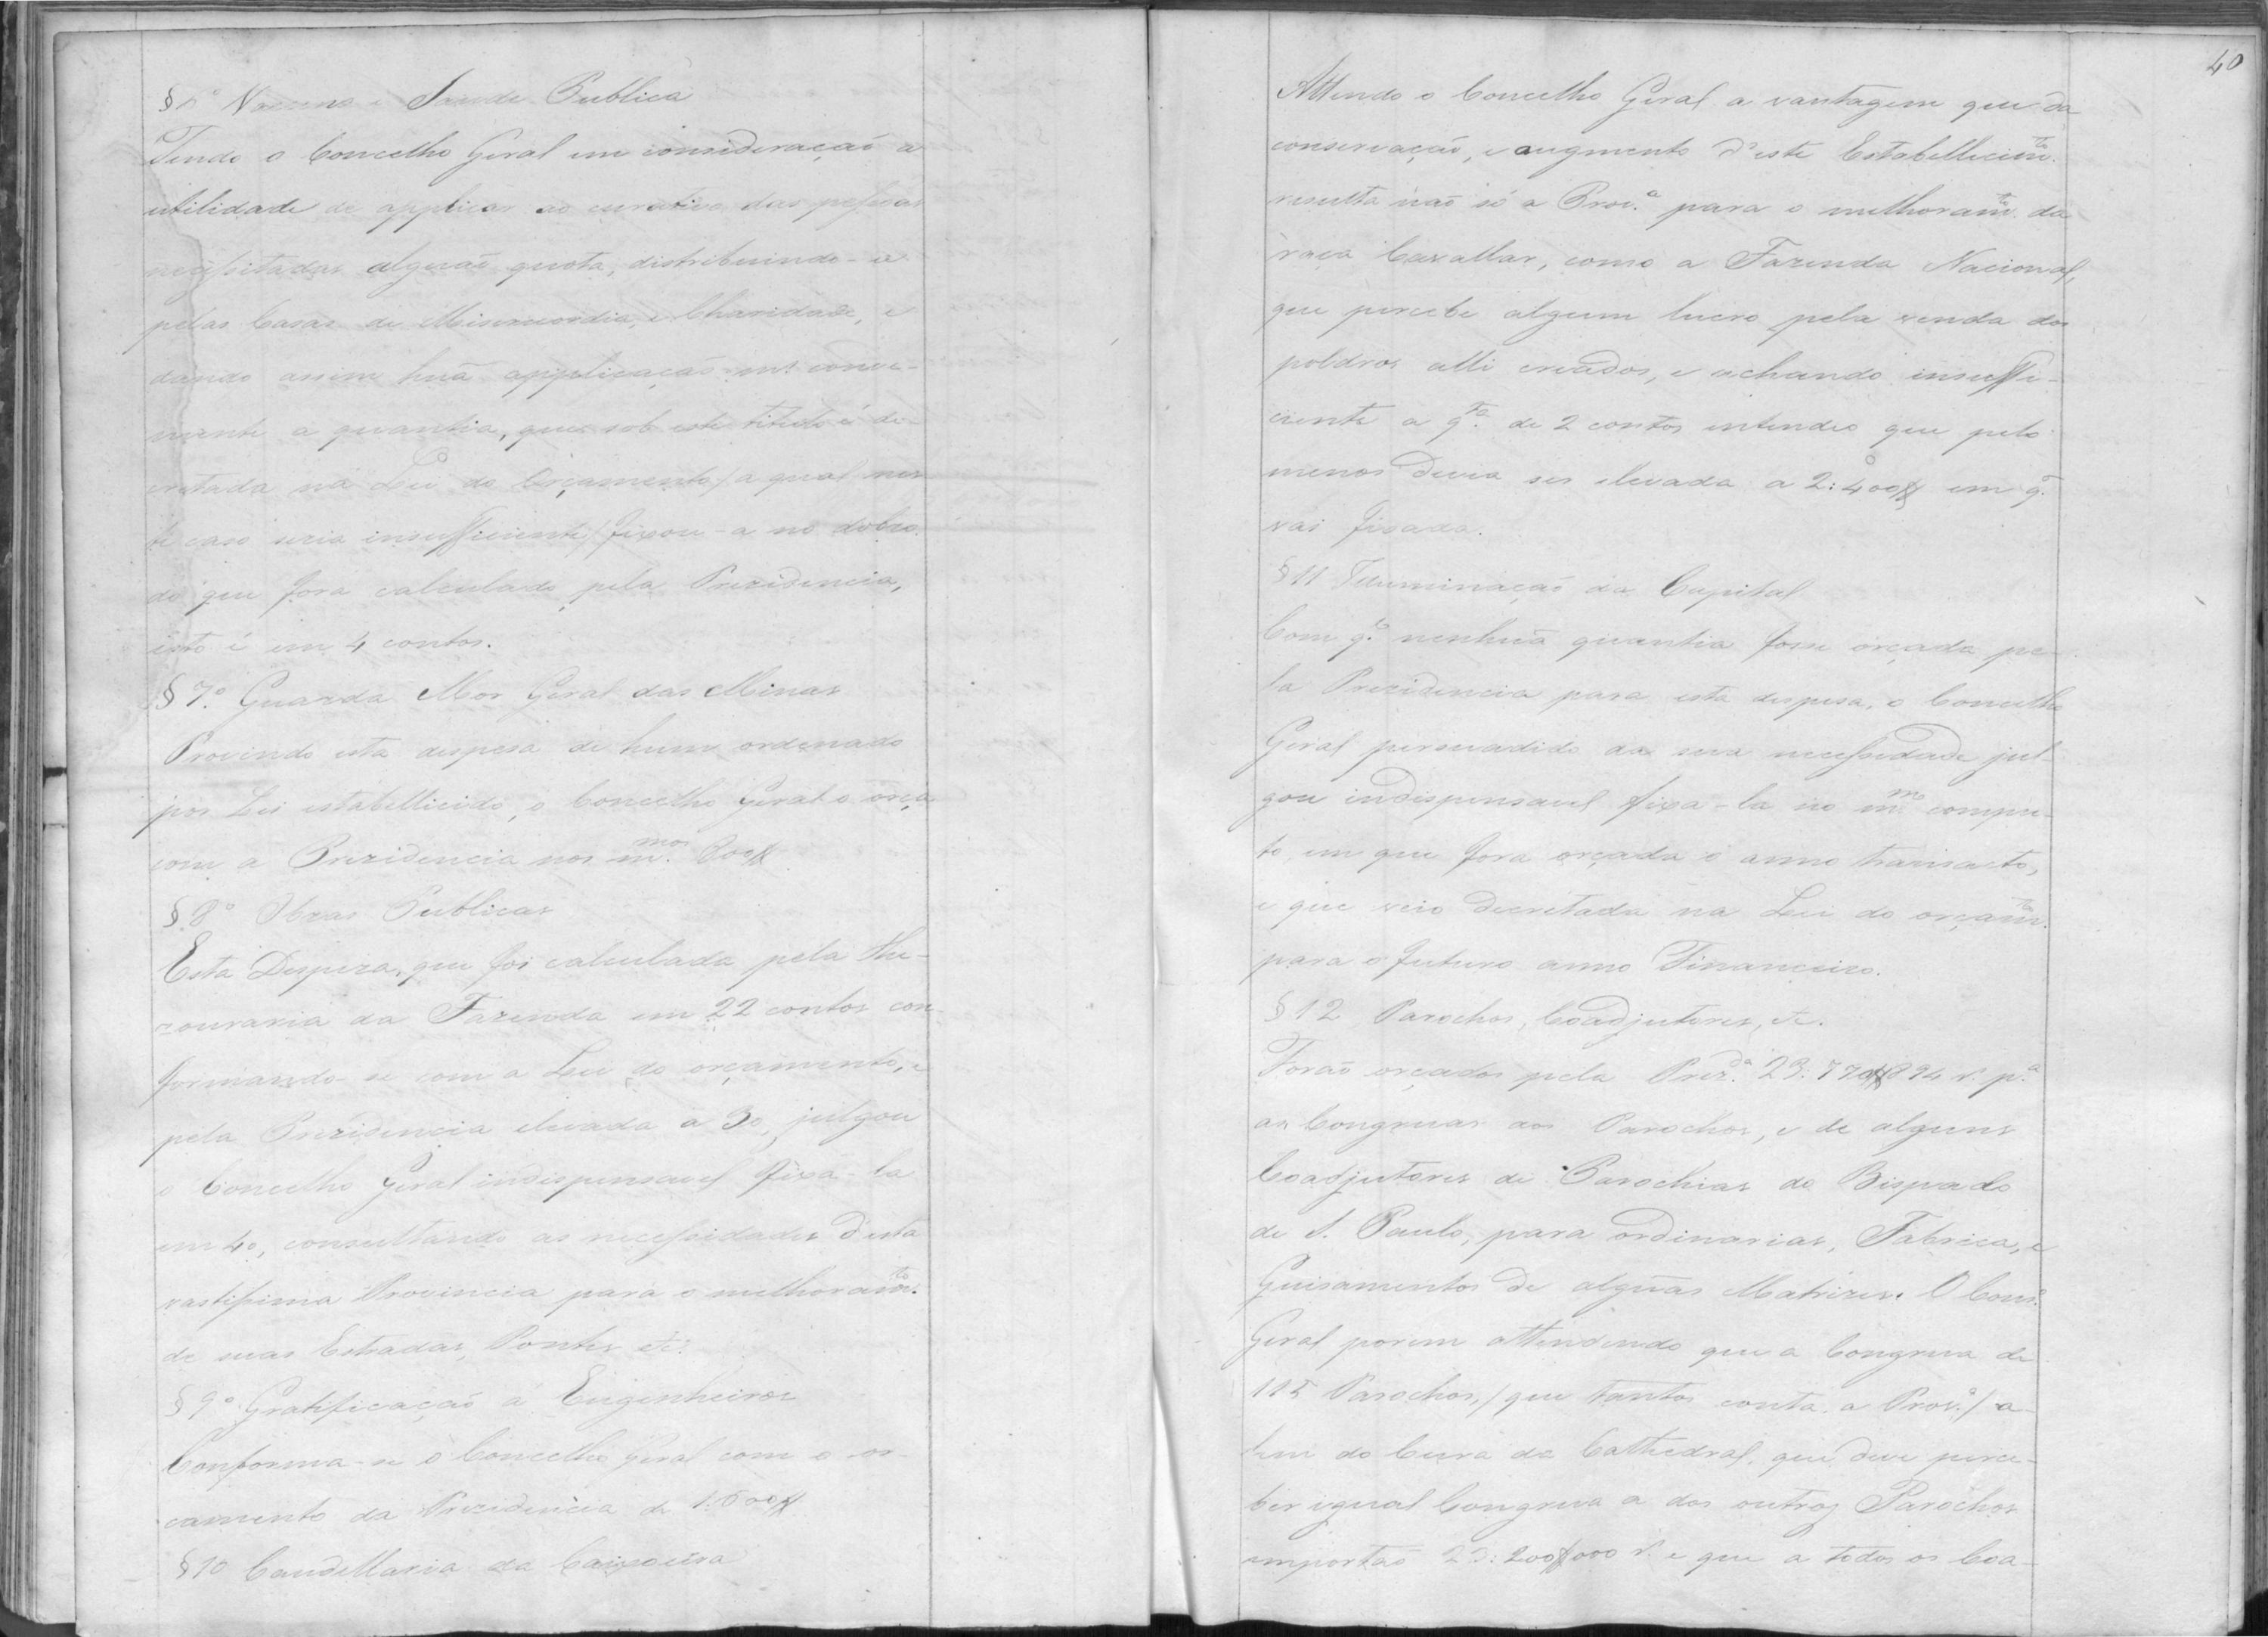 § 6º Vaccina e Saude Publica
Tendo o Concelho Geral em consideração a
utilidade de applicar ao curativo das pessoas
necessitadas alguã quota, distribuindo-a
pelas Casas de Misericordia, e Charidade, e
dando assim huã applicação ms. conve-
niente a quantia, que sob este titulo é de-
cretada na Lei do Orçamento / a qual nes
te caso seria insufficiente / fixou-a no dobro
do que fora calculado pela Prezidencia,
isto é em 4 contos.
§ 7º Guarda Mor Geral das Minas
Provindo esta despesa de hum ordenado
por Lei estabellicido, o Concelho Geral o orça
com a Prezidencia nos m.mos 800$
§ 8º Obras Publicas
Esta Despeza, que foi calculada pela The-
zouraria da Fazenda em 22 contos con-
formando-se com a Lei do orçamento, e
pela Prezidencia elevada a 30, julgou
o Concelho Geral indispensavel fixa-la
em 40, consultando as necessidades desta
vastissima Provincia para o melhoram.to
de suas Estradas, Pontes etc.
§ 9º Gratificação a Engenheiros
Conforma-se o Concelho Geral com o or-
camento da Prezidencia de 1:600$
§ 10 Caudellaria da Caxoeira
40
Attendo o Concelho Geral a vantagem que da
conservação, e augmento d'este Estabellecim.to
resulta não só a Prov.a para o melhoram.to da
raça Cavallar, como a Fazenda Nacional,
que percebe algum lucro pela venda dos
poldros alli creados, e achando insuffi-
ciente a q.ta de 2 contos entendeo que pelo
menos devia ser elevada a 2:400$ em q.
vai fixada.
§ 11 Illuminação da Capital
Com q.to nenhuã quantia fosse orçada pe-
la Prezidencia para esta despesa, o Concelho
Geral persuadido da sua necessidade jul-
gou indispensavel fixa-la no m.mo compu-
to, em que fora orçada o anno transacto,
e que veio decretada na Lei do orçam.to
para o futuro anno Financeiro.
§ 12 Parochos, Coadjutores, etc.
Forão orçados pela Prez.da 23:770$894 r. p.a
as Congruas aos Parochos, e de alguns
Coadjutores de Parochias do Bispado
de S. Paulo, para ordinarias, Fabrica, e
Guisamentos de alguãs Matrizes. O Cons.o
Geral porem attendendo que a Congrua de
115 Parochos, / que tantos conta a Prov.a / a-
lem do Cura da Cathedral, que deve perce-
ber igual Congrua a dos outros Parochos
importão 23:200$000 r. e que a todos os Coa-